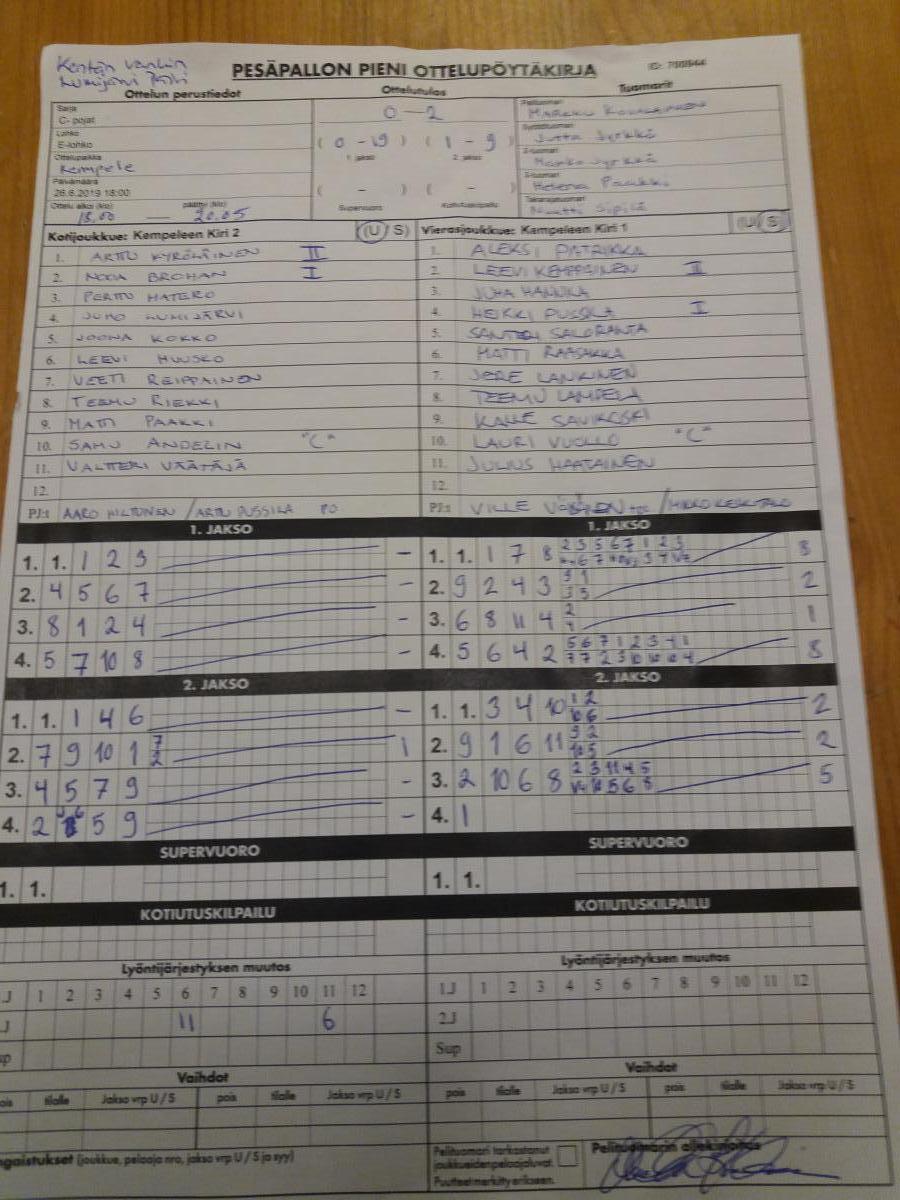 Kentän vanhin
Lumijärvi
PESÄPALLON PIENI OTTELUPÖYTÄKIRJA
Ottelun perustiedot
Ottelutulos
Tuomarit
Sarja
C- pojat
Lohko
E-lohko
Ottelupaikka
Kempele
Päivämäärä
26.6.2019 18:00
Ottelu alkoi (klo) päättyi (klo)
18.00 — 20.05
0 — 2
( 0 - 19 ) ( 1 - 9 )
1. jakso 2. jakso
( - ) ( - )
Supervuoro Kotiutuskilpailu
Pelituomari
MARKKU
Syöttötuomari
Jutta Jyrkkä
2-tuomari
Marko Jyrkkä
3-tuomari
Helena Paakki
Takarajatuomari
Sipilä
Kotijoukkue: Kempeleen Kiri 2 (U S)
1. ARTTU KYRÖLÄINEN II
2. NOOA BROHAN I
3. PERTTU MATERO
4. JUHO LUMIJÄRVI
5. JOONA KOKKO
6. LEEVI HUUSKO
7. VEETI REIPPAINEN
8. TEEMU RIEKKI
9. MATTI PAAKKI
10. SAMU ANDELIN "C"
11. VALTTERI VÄÄTÄJÄ
12.
PJ:t AARO HILTUNEN / ARTTU PUSSILA PO
Vierasjoukkue: Kempeleen Kiri 1 (U S)
1. ALEKSI PATRIKKA
2. LEEVI KEMPPAINEN II
3. JUHA HANNILA
4. HEIKKI PUSSILA I
5. SANTERI SALORANTA
6. MATTI RAASAKKA
7. JERE LANKINEN
8. TEEMU LAMPELA
9. KALLE SAVIKOSKI
10. LAURI VUOLLO "C"
11. JULIUS HAATAINEN
12.
PJ:t VILLE / MIKKO KESKITALO
1. JAKSO
1. 1. 1 2 3 –
2. 4 5 6 7 –
3. 8 1 2 4 –
4. 5 7 10 8 –
1. JAKSO
1. 1. 1 7 8 2 3 5 6 7 1 2 3 8
2. 9 2 4 3 9 1 2
3. 6 8 11 4 2 1
4. 5 6 4 2 5 6 7 1 2 3 4 1 8
7 7 2 3 10 10 10 4
2. JAKSO
1. 1. 1 4 6 –
2. 7 9 10 1 7 1
2
3. 4 5 7 9 –
4. 2 5 9 –
2. JAKSO
1. 1. 3 4 10 1 2 2
10 6
2. 9 1 6 11 9 2 2
10 5
3. 2 10 6 8 2 3 11 4 5 5
10 5 6 8
4. 1
SUPERVUORO
1. 1.
SUPERVUORO
1. 1.
KOTIUTUSKILPAILU
KOTIUTUSKILPAILU
Lyöntijärjestyksen muutos
J 1 2 3 4 5 6 7 8 9 10 11 12
J 11 6
up
Lyöntijärjestyksen muutos
1J 1 2 3 4 5 6 7 8 9 10 11 12
2J
Sup
Vaihdot
ois tilalle Jakso vrp U / S pois tilalle Jakso vrp U / S
Vaihdot
pois tilalle Jakso vrp U / S pois tilalle Jakso vrp U / S
ngaistukset (joukkue, pelaaja nro, jakso vrp U / S ja syy)
Pelituomari tarkastanut
joukkueiden pelaajaluvat.
Puutteet merkitty erikseen.
Pelituomarin allekirjoitus